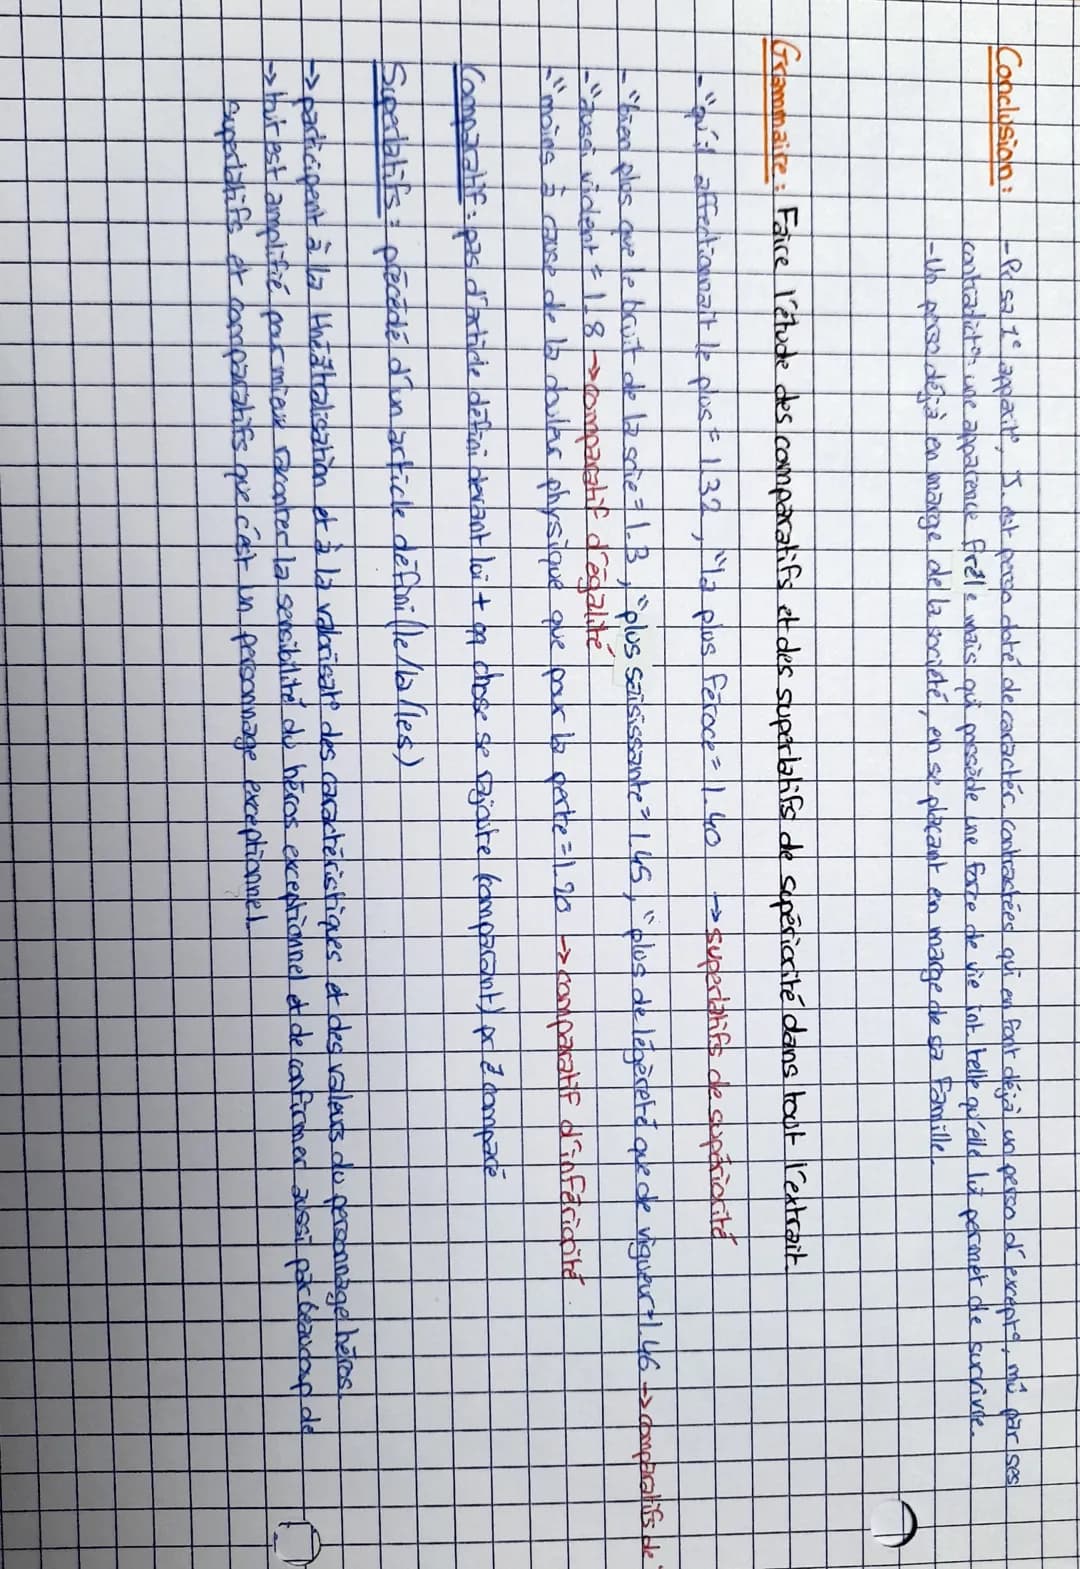 Conclusion : - Ps sa 1e appart°, J. est person doté de caractér. contractées qui en font déjà un perso d'except°, mû par ses
contradict°: une apparence frêle mais qui possède une force de vie int. telle qu'elle lui permet de survivre.
- Un perso déjà en marge de la société, en se plaçant en marge de sa famille.
Grammaire : Faire l'étude des comparatifs et des superlatifs de supériorité dans tout l'extrait.
- "qu'il affectionnait le plus" = l.32, "la plus féroce = l.40 → superlatifs de supériorité
- "bien plus que le bruit de la scie = l.3, "plus saisissante" = l.45, "plus de légèreté que de vigueur" = l.46 → comparatifs de
- "aussi vident" = l.8 → comparatif d'égalité
- "moins à cause de la douleur physique que pour la perte = l.20 → comparatif d'infériorité
Comparatif : pas d'article défini devant lui + qq chose se rajoute (comparant) pr ê comparé
Superlatifs : précédé d'un article défini (le/la/les)
→ participent à la théâtralisation et à la valorisat° des caractéristiques et des valeurs du personnage héros.
→ tout est amplifié pour mieux raconter la sensibilité du héros exceptionnel et de confirmer aussi par beaucoup de
superlatifs et comparatifs que c'est un personnage exceptionnel